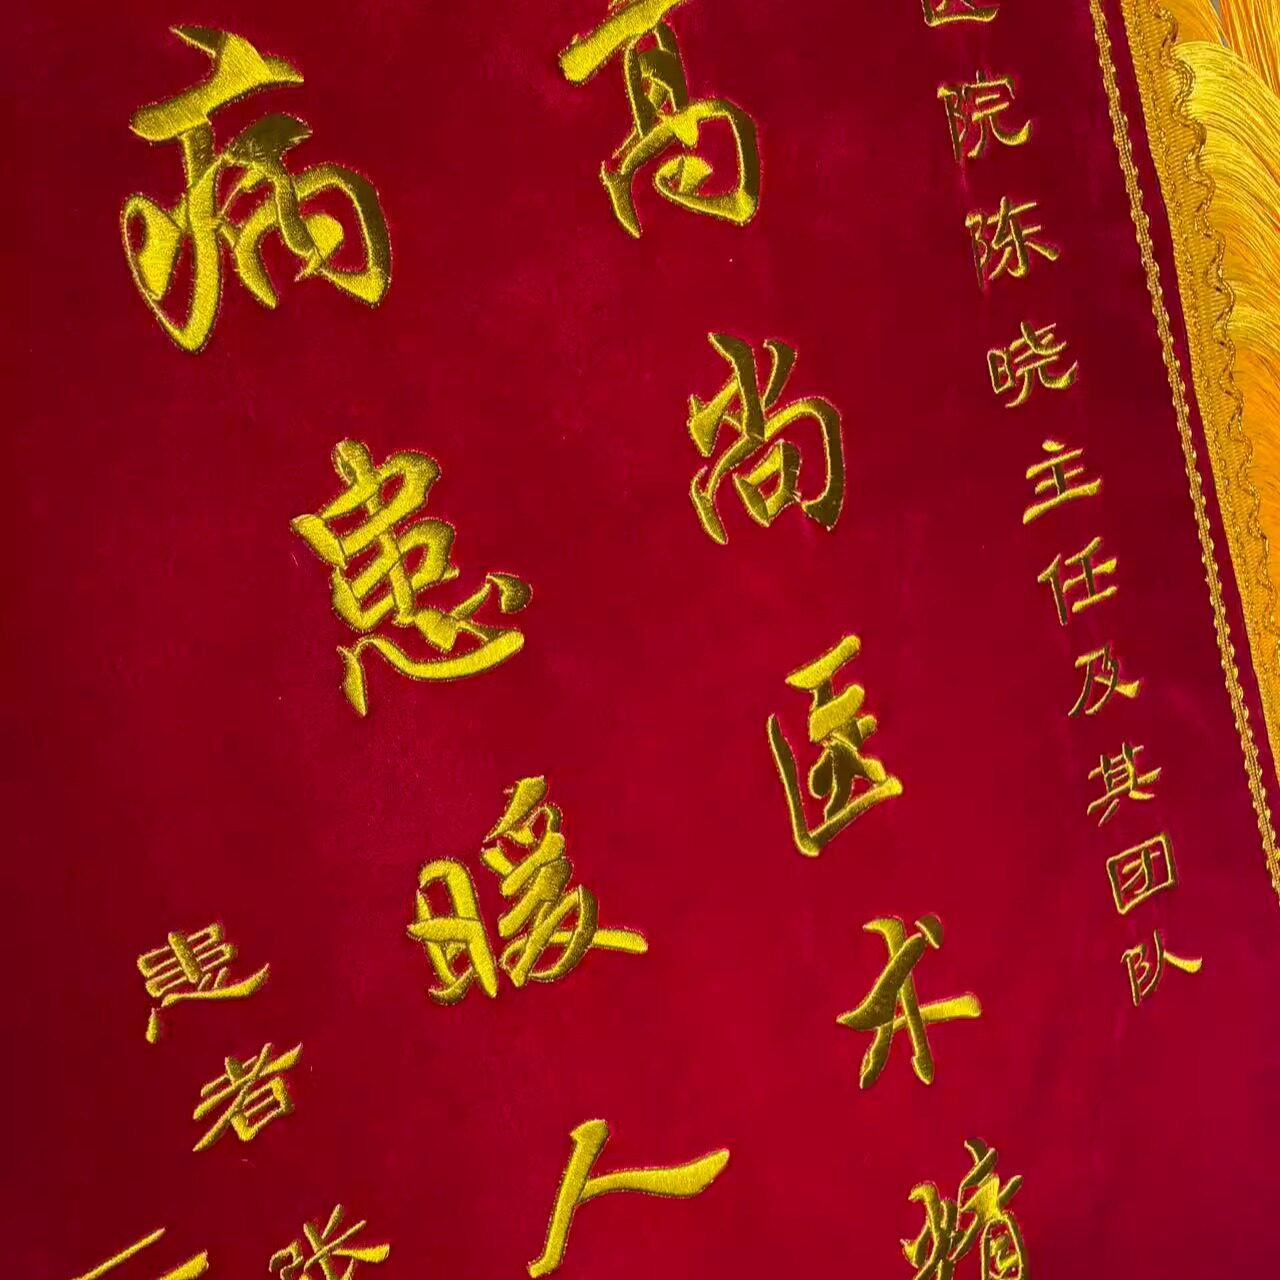 医院陈晓主任及其团队
高尚医术精
病患暖人
患者
张